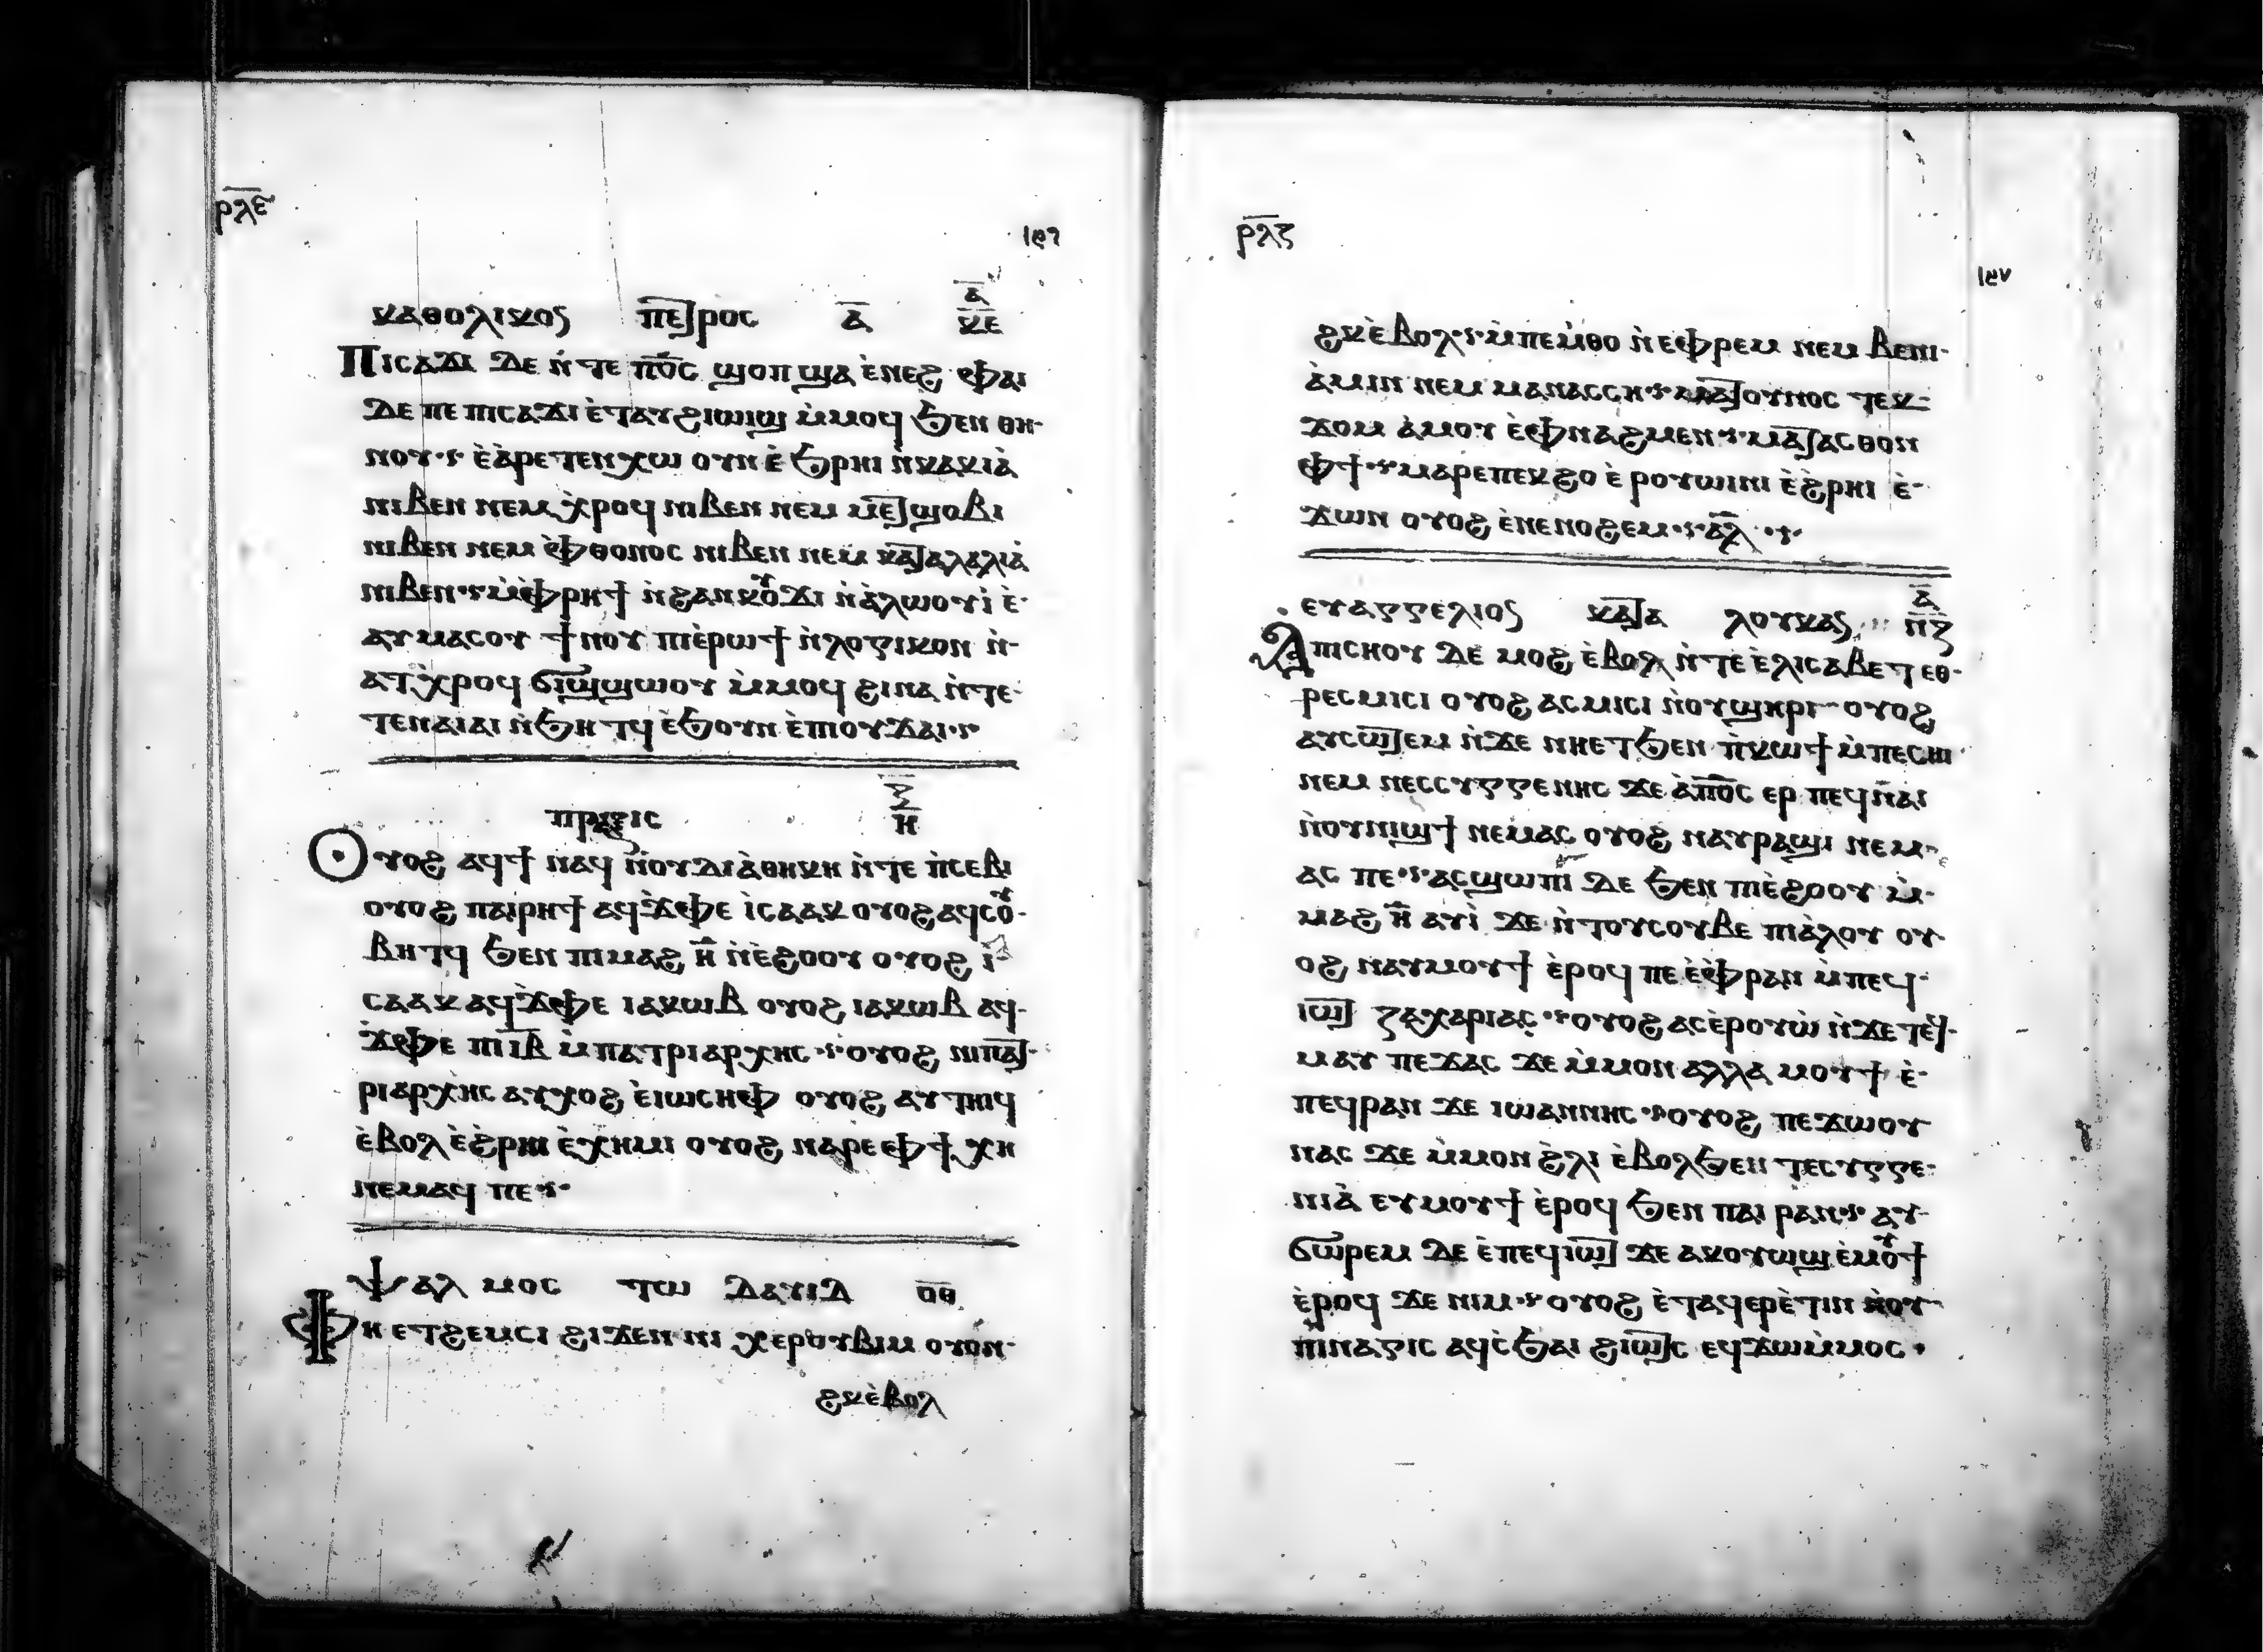 ⲣⲗⲉ̅
ⲕⲁⲑⲟⲗⲓⲕⲟⲥ ⲡⲉⲧⲣⲟⲥ ⲁ̅ ⲁ̅ ⲕⲉ̅
Ⲡⲓⲥⲁϫⲓ ⲇⲉ ⲛ̀ⲧⲉ ⲡⲟ̅ⲥ̅ ϣⲟⲡ ϣⲁ ⲉ̀ⲛⲉϩ ⲫⲁⲓ
ⲇⲉ ⲡⲉ ⲡⲓⲥⲁϫⲓ ⲉ̀ⲧⲁⲩϩⲓⲱⲓϣ ⲙ̀ⲙⲟϥ ϧⲉⲛ ⲑⲏ-
ⲛⲟⲩ ⲉ̀ⲁ̀ⲣⲉⲧⲉⲛⲭⲱ ⲟⲩⲛ ⲉ̀ϧⲣⲏⲓ ⲛ̀ⲕⲁⲕⲓⲁ̀
ⲛⲓⲃⲉⲛ ⲛⲉⲙ ⲭ̀ⲣⲟϥ ⲛⲓⲃⲉⲛ ⲛⲉⲙ ⲙⲉⲧϣⲟⲃⲓ
ⲛⲓⲃⲉⲛ ⲛⲉⲙ ⲫ̀ⲑⲟⲛⲟⲥ ⲛⲓⲃⲉⲛ ⲛⲉⲙ ⲕⲁⲧⲁⲗⲁⲗⲓⲁ̀
ⲛⲓⲃⲉⲛ ⲙ̀ⲫⲣⲏϯ ⲛ̀ϩⲁⲛⲕⲟⲩϫⲓ ⲛ̀ⲁ̀ⲗⲱⲟⲩⲓ̀ ⲉ̀-
ⲁⲩⲙⲁⲥⲟⲩ ϯⲛⲟⲩ ⲡⲓⲉ̀ⲣⲱϯ ⲛ̀ⲗⲟⲅⲓⲕⲟⲛ ⲛ̀-
ⲁⲧⲭ̀ⲣⲟϥ ϭⲓϣϣⲱⲟⲩ ⲙ̀ⲙⲟϥ ϩⲓⲛⲁ ⲛ̀ⲧⲉ-
ⲧⲉⲛⲁⲓⲁⲓ ⲛ̀ϧⲏⲧϥ ⲉ̀ϧⲟⲩⲛ ⲉ̀ⲡⲓⲟⲩϫⲁⲓ
ⲡⲣⲝⲓⲥ ⲍ̅ ⲏ̅
Ⲟⲩⲟϩ ⲁϥϯ ⲛⲁϥ ⲛ̀ⲟⲩⲇⲓⲁ̀ⲑⲏⲕⲏ ⲛ̀ⲧⲉ ⲡ̀ⲥⲉⲃⲓ
ⲟⲩⲟϩ ⲡⲁⲓⲣⲏϯ ⲁϥϫ̀ⲫⲉ ⲓ̀ⲥⲁⲁⲕ ⲟⲩⲟϩ ⲁϥⲥⲟⲩ-
ⲃⲏⲧϥ ϧⲉⲛ ⲡⲓⲙⲁϩ ⲏ̅ ⲛ̀ⲉ̀ϩⲟⲟⲩ ⲟⲩⲟϩ ⲓ̀-
ⲥⲁⲁⲕ ⲁϥϫ̀ⲫⲉ ⲓⲁⲕⲱⲃ ⲟⲩⲟϩ ⲓⲁⲕⲱⲃ ⲁϥ-
ϫ̀ⲫⲉ ⲡⲓⲓ̅ⲃ̅ ⲙ̀ⲡⲁⲧⲣⲓⲁⲣⲭⲏⲥ ⲟⲩⲟϩ ⲛⲓⲡⲁⲧ-
ⲣⲓⲁⲣⲭⲏⲥ ⲁⲩⲭⲟϩ ⲉ̀ⲓⲱⲥⲏⲫ ⲟⲩⲟϩ ⲁⲩⲧⲏⲓϥ
ⲉ̀ⲃⲟⲗ ⲉ̀ϩ̀ⲣⲏⲓ ⲉ̀ⲭⲏⲙⲓ ⲟⲩⲟϩ ⲛⲁⲣⲉ ⲫϯ ⲭⲏ
ⲛⲉⲙⲁϥ ⲡⲉ
ⲯⲁⲗⲙⲟⲥ ⲧⲱ ⲇⲁⲩⲓⲇ ⲟ̅ⲑ̅
Ⲫⲏ ⲉⲧϩⲉⲙⲥⲓ ϩⲓϫⲉⲛ ⲛⲓⲭⲉⲣⲟⲩⲃⲓⲙ ⲟⲩⲟⲛ-
ϩⲕ ⲉ̀ⲃⲟⲗ
ⲣⲗⲋ̅
ϩⲕ ⲉ̀ⲃⲟⲗ ⲙ̀ⲡⲉⲙ̀ⲑⲟ ⲛ̀ⲉⲫⲣⲉⲙ ⲛⲉⲙ ⲃⲉⲛⲓ-
ⲁ̀ⲙⲓⲛ ⲛⲉⲙ ⲙⲁⲛⲁⲥⲥⲏ ⲙⲁⲧⲟⲩⲛⲟⲥ ⲧⲉⲕ-
ϫⲟⲙ ⲁ̀ⲙⲟⲩ ⲉ̀ⲫⲛⲁϩⲙⲉⲛ ⲙⲁⲧⲁⲥⲑⲟⲛ
ⲫϯ ⲙⲁⲣⲉ ⲡⲉⲕϩⲟ ⲉ̀ⲣⲟⲩⲱⲓⲛⲓ ⲉ̀ϩ̀ⲣⲏⲓ ⲉ̀-
ϫⲱⲛ ⲟⲩⲟϩ ⲉ̀ⲛⲉⲛⲟϩⲉⲙ ⲁ̅ⲗ̅
ⲉⲩⲁⲅⲅⲉⲗⲓⲟⲥ ⲕⲁⲧⲁ ⲗⲟⲩⲕⲁⲥ ⲁ̅ ⲛ̅ⲍ̅
Ⲁ̀ⲡⲓⲥⲏⲟⲩ ⲇⲉ ⲙⲟϩ ⲉ̀ⲃⲟⲗ ⲛ̀ⲧⲉ ⲉ̀ⲗⲓⲥⲁⲃⲉⲧ ⲉⲑ-
ⲣⲉⲥⲙⲓⲥⲓ ⲟⲩⲟϩ ⲁⲥⲙⲓⲥⲓ ⲛ̀ⲟⲩϣⲏⲣⲓ ⲟⲩⲟϩ
ⲁⲩⲥⲱⲧⲉⲙ ⲛ̀ϫⲉ ⲛⲏⲉⲧϧⲉⲛ ⲡ̀ⲕⲱϯ ⲙ̀ⲡⲉⲥⲏⲓ
ⲛⲉⲙ ⲛⲉⲥⲥⲩⲅⲅⲉⲛⲏⲥ ϫⲉ ⲁ̀ⲡⲟ̅ⲥ̅ ⲉⲣ ⲡⲉϥⲛⲁⲓ
ⲛ̀ⲟⲩⲛⲓϣϯ ⲛⲉⲙⲁⲥ ⲟⲩⲟϩ ⲛⲁⲩⲣⲁϣⲓ ⲛⲉⲙ-
ⲁⲥ ⲡⲉ ⲁⲥϣⲱⲡⲓ ⲇⲉ ϧⲉⲛ ⲡⲓⲉ̀ϩⲟⲟⲩ ⲙ̀-
ⲙⲁϩ ⲏ̅ ⲁⲩⲓ̀ ϫⲉ ⲛ̀ⲧⲟⲩⲥⲟⲩⲃⲉ ⲡⲓⲁ̀ⲗⲟⲩ ⲟⲩ-
ⲟϩ ⲛⲁⲩⲙⲟⲩϯ ⲉ̀ⲣⲟϥ ⲡⲉ ⲉ̀ⲫⲣⲁⲛ ⲙ̀ⲡⲉϥ-
ⲓⲱⲧ ⲍⲁⲭⲁⲣⲓⲁⲥ ⲟⲩⲟϩ ⲁⲥⲉ̀ⲣⲟⲩⲱ̀ ⲛ̀ϫⲉ ⲧⲉϥ-
ⲙⲁⲩ ⲡⲉϫⲁⲥ ϫⲉ ⲙ̀ⲙⲟⲛ ⲁⲗⲗⲁ ⲙⲟⲩϯ ⲉ̀-
ⲡⲉϥⲣⲁⲛ ϫⲉ ⲓⲱⲁⲛⲛⲏⲥ ⲟⲩⲟϩ ⲡⲉϫⲱⲟⲩ
ⲛⲁⲥ ϫⲉ ⲙ̀ⲙⲟⲛ ϩ̀ⲗⲓ ⲉ̀ⲃⲟⲗϧⲉⲛ ⲧⲉⲥⲩⲅⲅⲉ-
ⲛⲓⲁ̀ ⲉⲩⲙⲟⲩϯ ⲉ̀ⲣⲟϥ ϧⲉⲛ ⲡⲁⲓ ⲣⲁⲛ ⲁⲩ-
ϭⲱⲣⲉⲙ ⲇⲉ ⲉ̀ⲡⲉϥⲓⲱⲧ ϫⲉ ⲁⲕⲟⲩⲱϣ ⲉ̀ⲙⲟⲩϯ
ⲉ̀ⲣⲟϥ ϫⲉ ⲛⲓⲙ ⲟⲩⲟϩ ⲉ̀ⲧⲁϥⲉⲣⲉ̀ⲧⲓⲛ ⲛ̀ⲟⲩ-
ⲡⲓⲛⲁⲅⲓⲥ ⲁϥⲥ̀ϧⲁⲓ ϩⲓⲱⲧⲥ ⲉϥϫⲱⲙ̀ⲙⲟⲥ